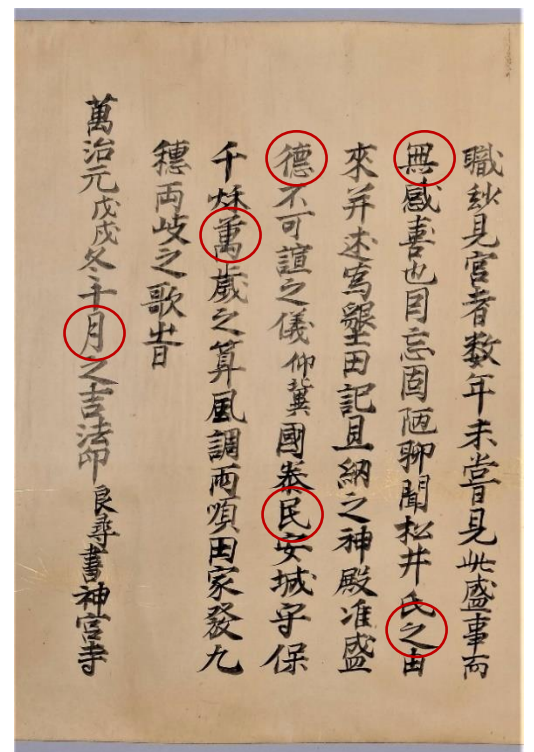 職紗見官者数年未嘗見此盛事而
無感喜也因忘固陋聊聞松井氏之由
來并述寫墾田記且納之神殿准盛
德不可諠之儀仰冀國泰民安城守保
千秌萬歳之算風調雨順田家發九
穗両岐之歌時
萬治元戊戌冬十月之吉法印良尋書神宮寺